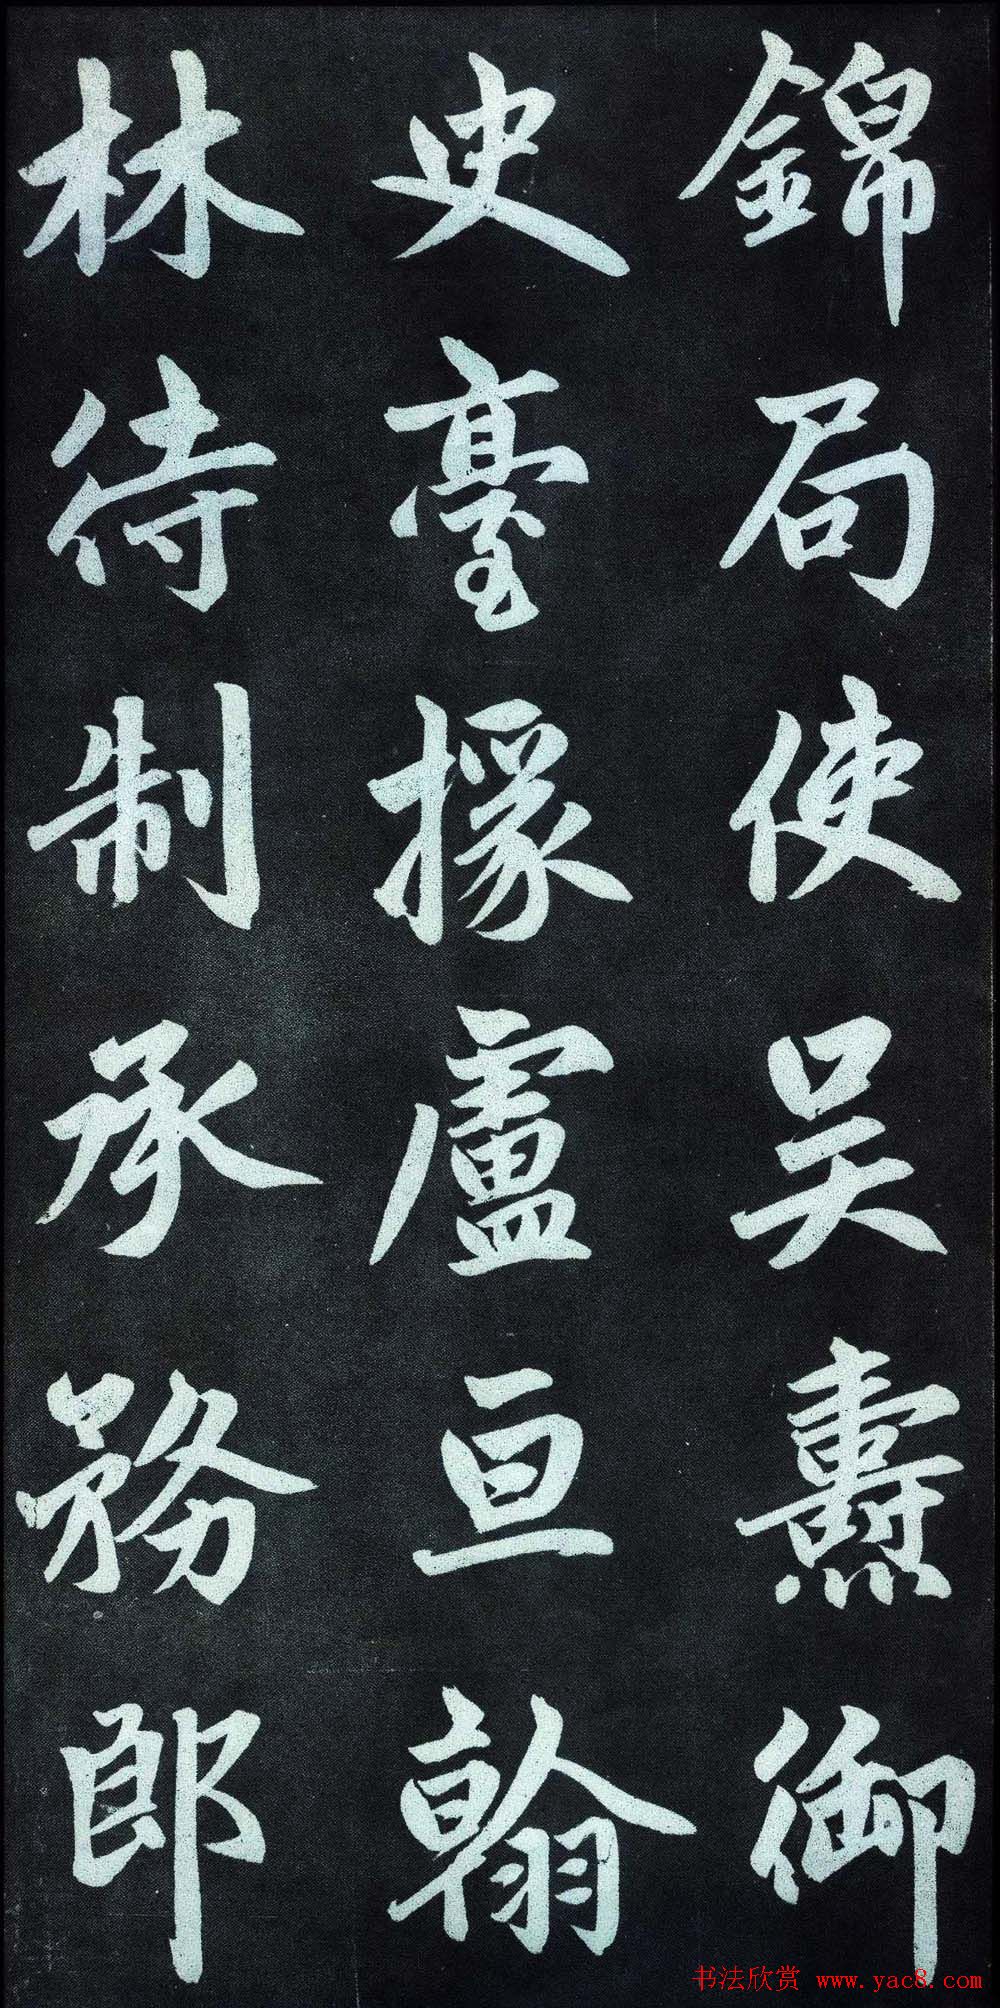 錦局使吴燾御
史臺掾盧亘翰
林待制承務郎
书法欣赏 www.yac8.com